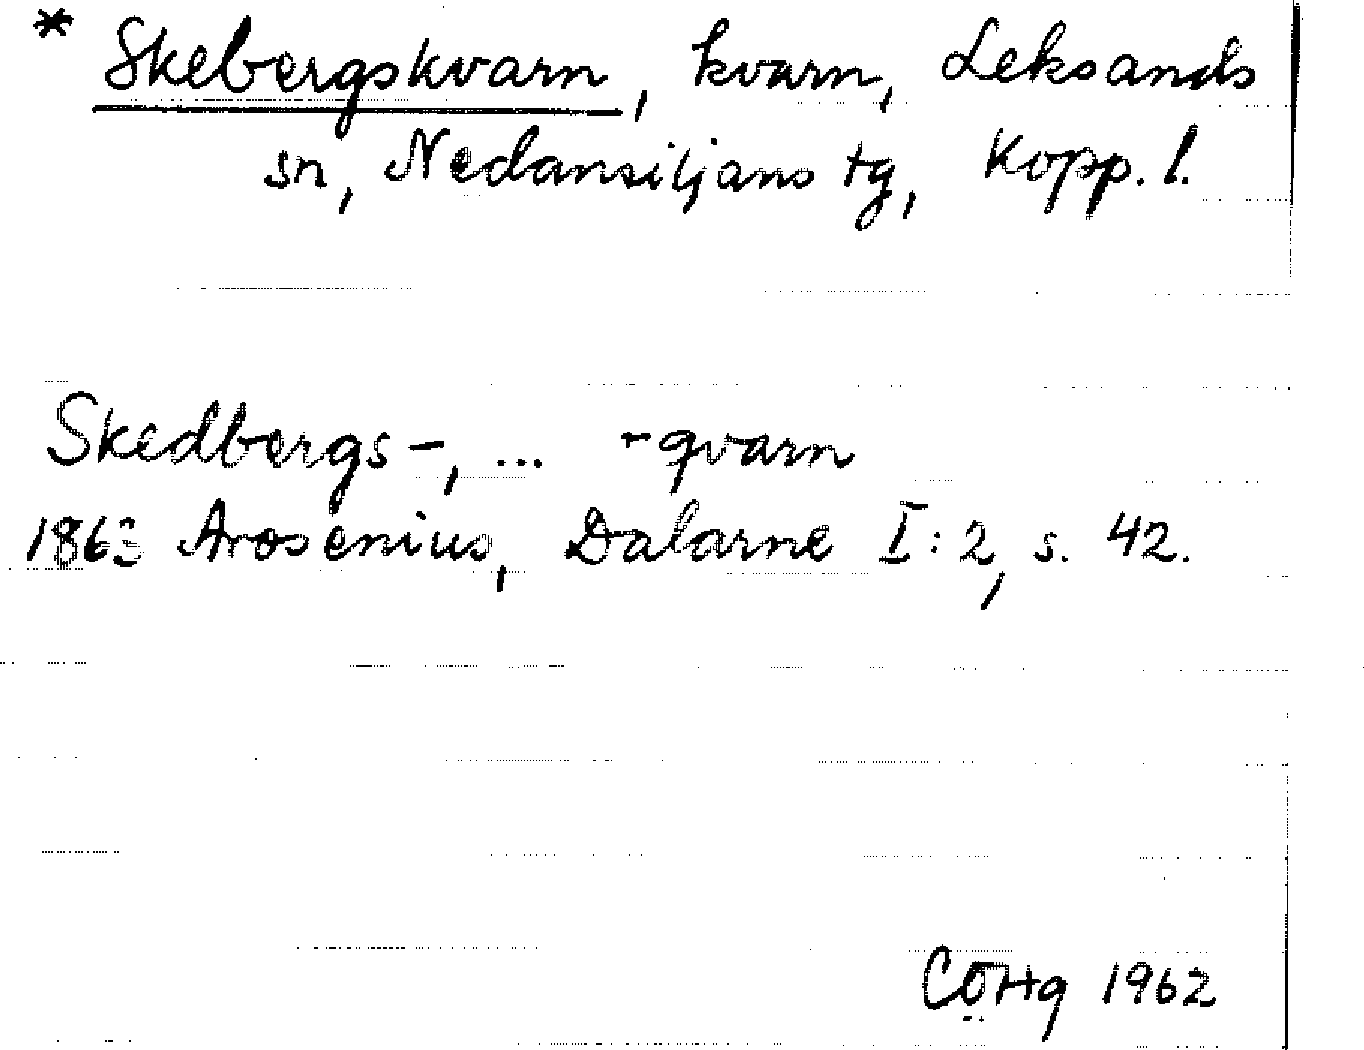 * Skebergskvarn, kvarn, Leksands
sn, Nedansiljans tg, Kopp. l.
Skedbergs-, ... -qvarn
1863 Arosenius, Dalarne I:2, s. 42.
1962